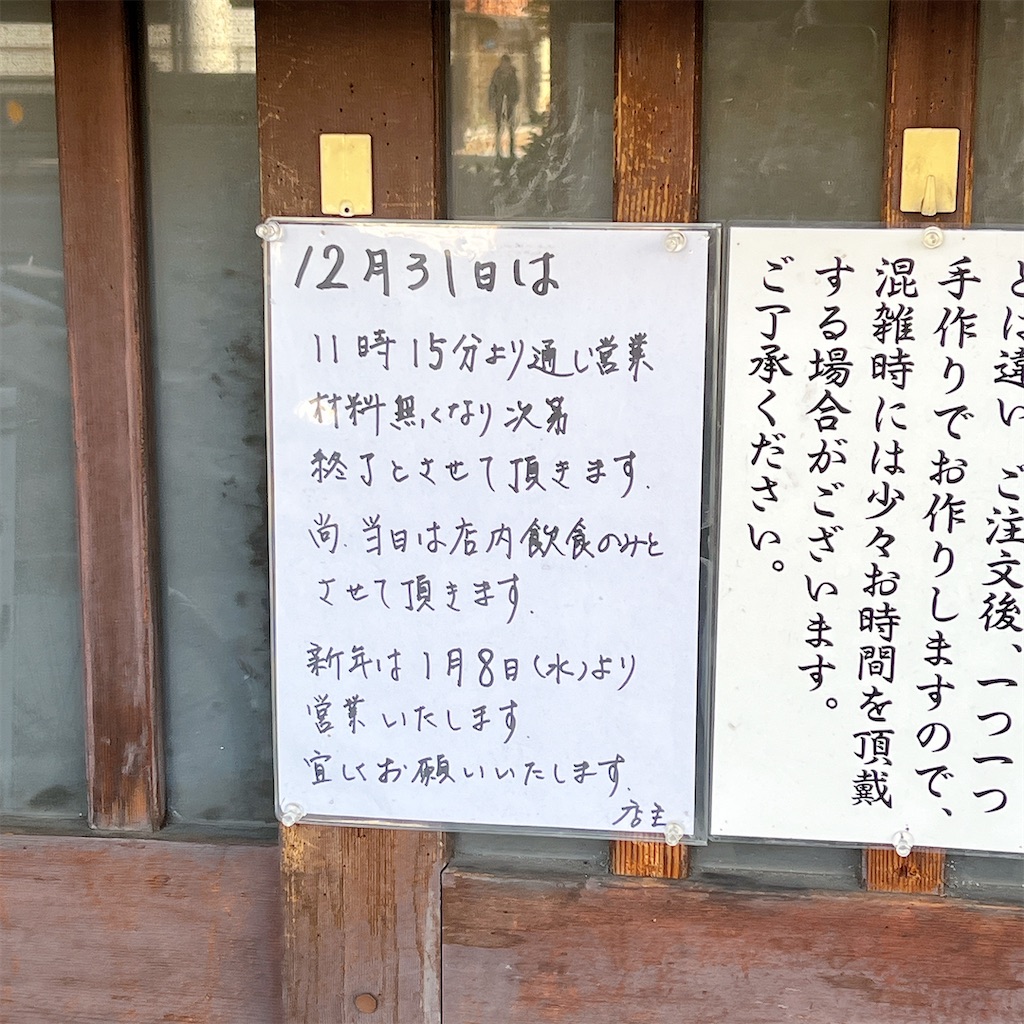 12月31日は
11時15分より通し営業
材料無くなり次第
終了とさせて頂きます.
尚.当日は店内飲食のみと
させて頂きます.
新年は1月8日(水)より
営業いたします.
宜しくお願いいたします.
店主
とは違い、ご注文後、一つ一つ
手作りでお作りしますので、
混雑時には少々お時間を頂戴
する場合がございます。
ご了承ください。